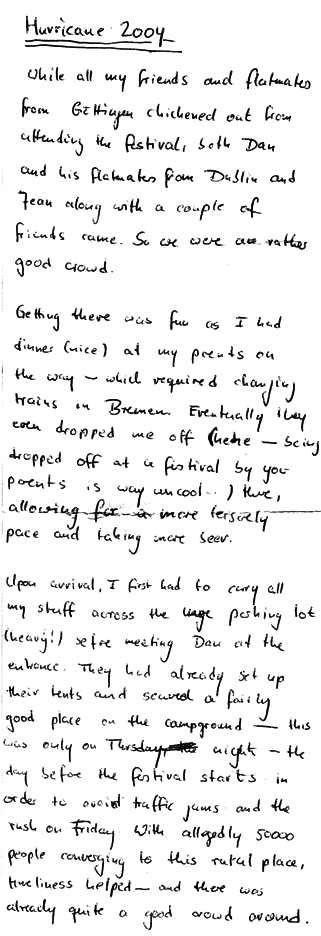 Hurricane 2004
While all my friends and flatmates
from Göttingen chickened out from
attending the festival, both Dan
and his flatmates from Dublin and
Jean along with a couple of
friends came. So we were a rather
good crowd.
Getting there was fun as I had
dinner (nice) at my parents on
the way – which required changing
trains in Bremen. Eventually they
even dropped me off (hehe – being
dropped off at a festival by your
parents is way uncool..) there,
allowing for a more leisurely
pace and taking more beer.
Upon arrival, I first had to carry all
my stuff across the huge parking lot
(heavy!) before meeting Dan at the
entrance. They had already set up
their tents and secured a fairly
good place on the campground – this
was only on Thursday night – the
day before the festival starts in
order to avoid traffic jams and the
rush on Friday. With allegedly 50000
people converging to this rural place,
timeliness helped – and there was
already quite a good crowd around.